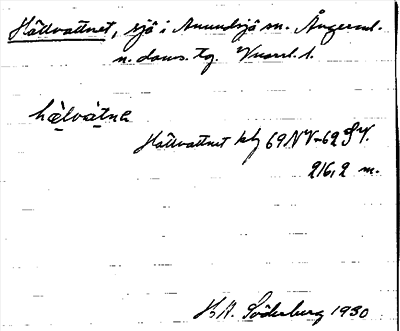 Hällvattnet, sjö i Anundsjö sn. Ångerml.
n. doms. tg.
hälvàtnə
Hällvattnet kbl 69 NV-62 SV.
216,2 m.
H. Söderberg 1930